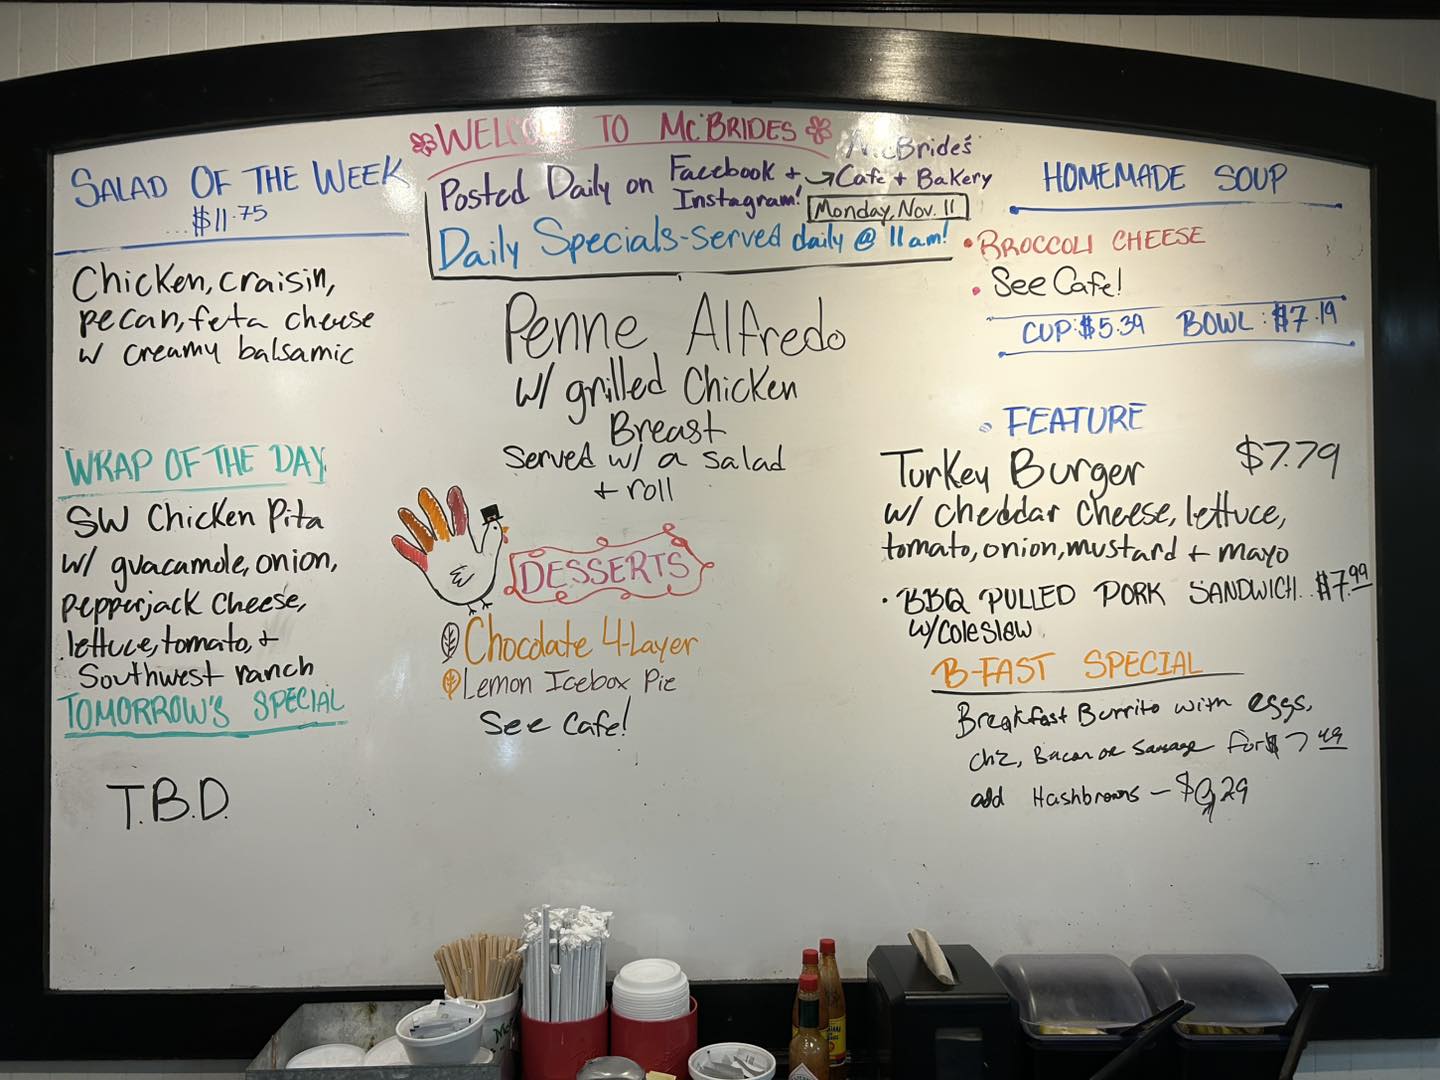 WELCOME TO McBRIDES
Posted Daily on Facebook +
Instagram!
McBride's
Cafe + Bakery
Monday, Nov. 11
Daily Specials-served daily @ 11am!
SALAD OF THE WEEK
$11.75
Chicken, craisin,
pecan, feta cheese
w creamy balsamic
WRAP OF THE DAY
SW Chicken Pita
w/ guacamole, onion,
pepperjack cheese,
lettuce, tomato, +
Southwest ranch
TOMORROW'S SPECIAL
T.B.D.
Penne Alfredo
w/ grilled Chicken
Breast
Served w/ a salad
+ roll
DESSERTS
Chocolate 4-Layer
Lemon Icebox Pie
See Cafe!
HOMEMADE SOUP
• BROCCOLI CHEESE
• See Cafe!
CUP: $5.39 BOWL: $7.19
• FEATURE
Turkey Burger $7.79
w/ cheddar cheese, lettuce,
tomato, onion, mustard + mayo
• BBQ PULLED PORK SANDWICH.. $7.99
w/coleslaw
B-FAST SPECIAL
Breakfast Burrito with eggs,
chz, Bacon or Sausage for $7.49
add Hashbrowns - $9.29